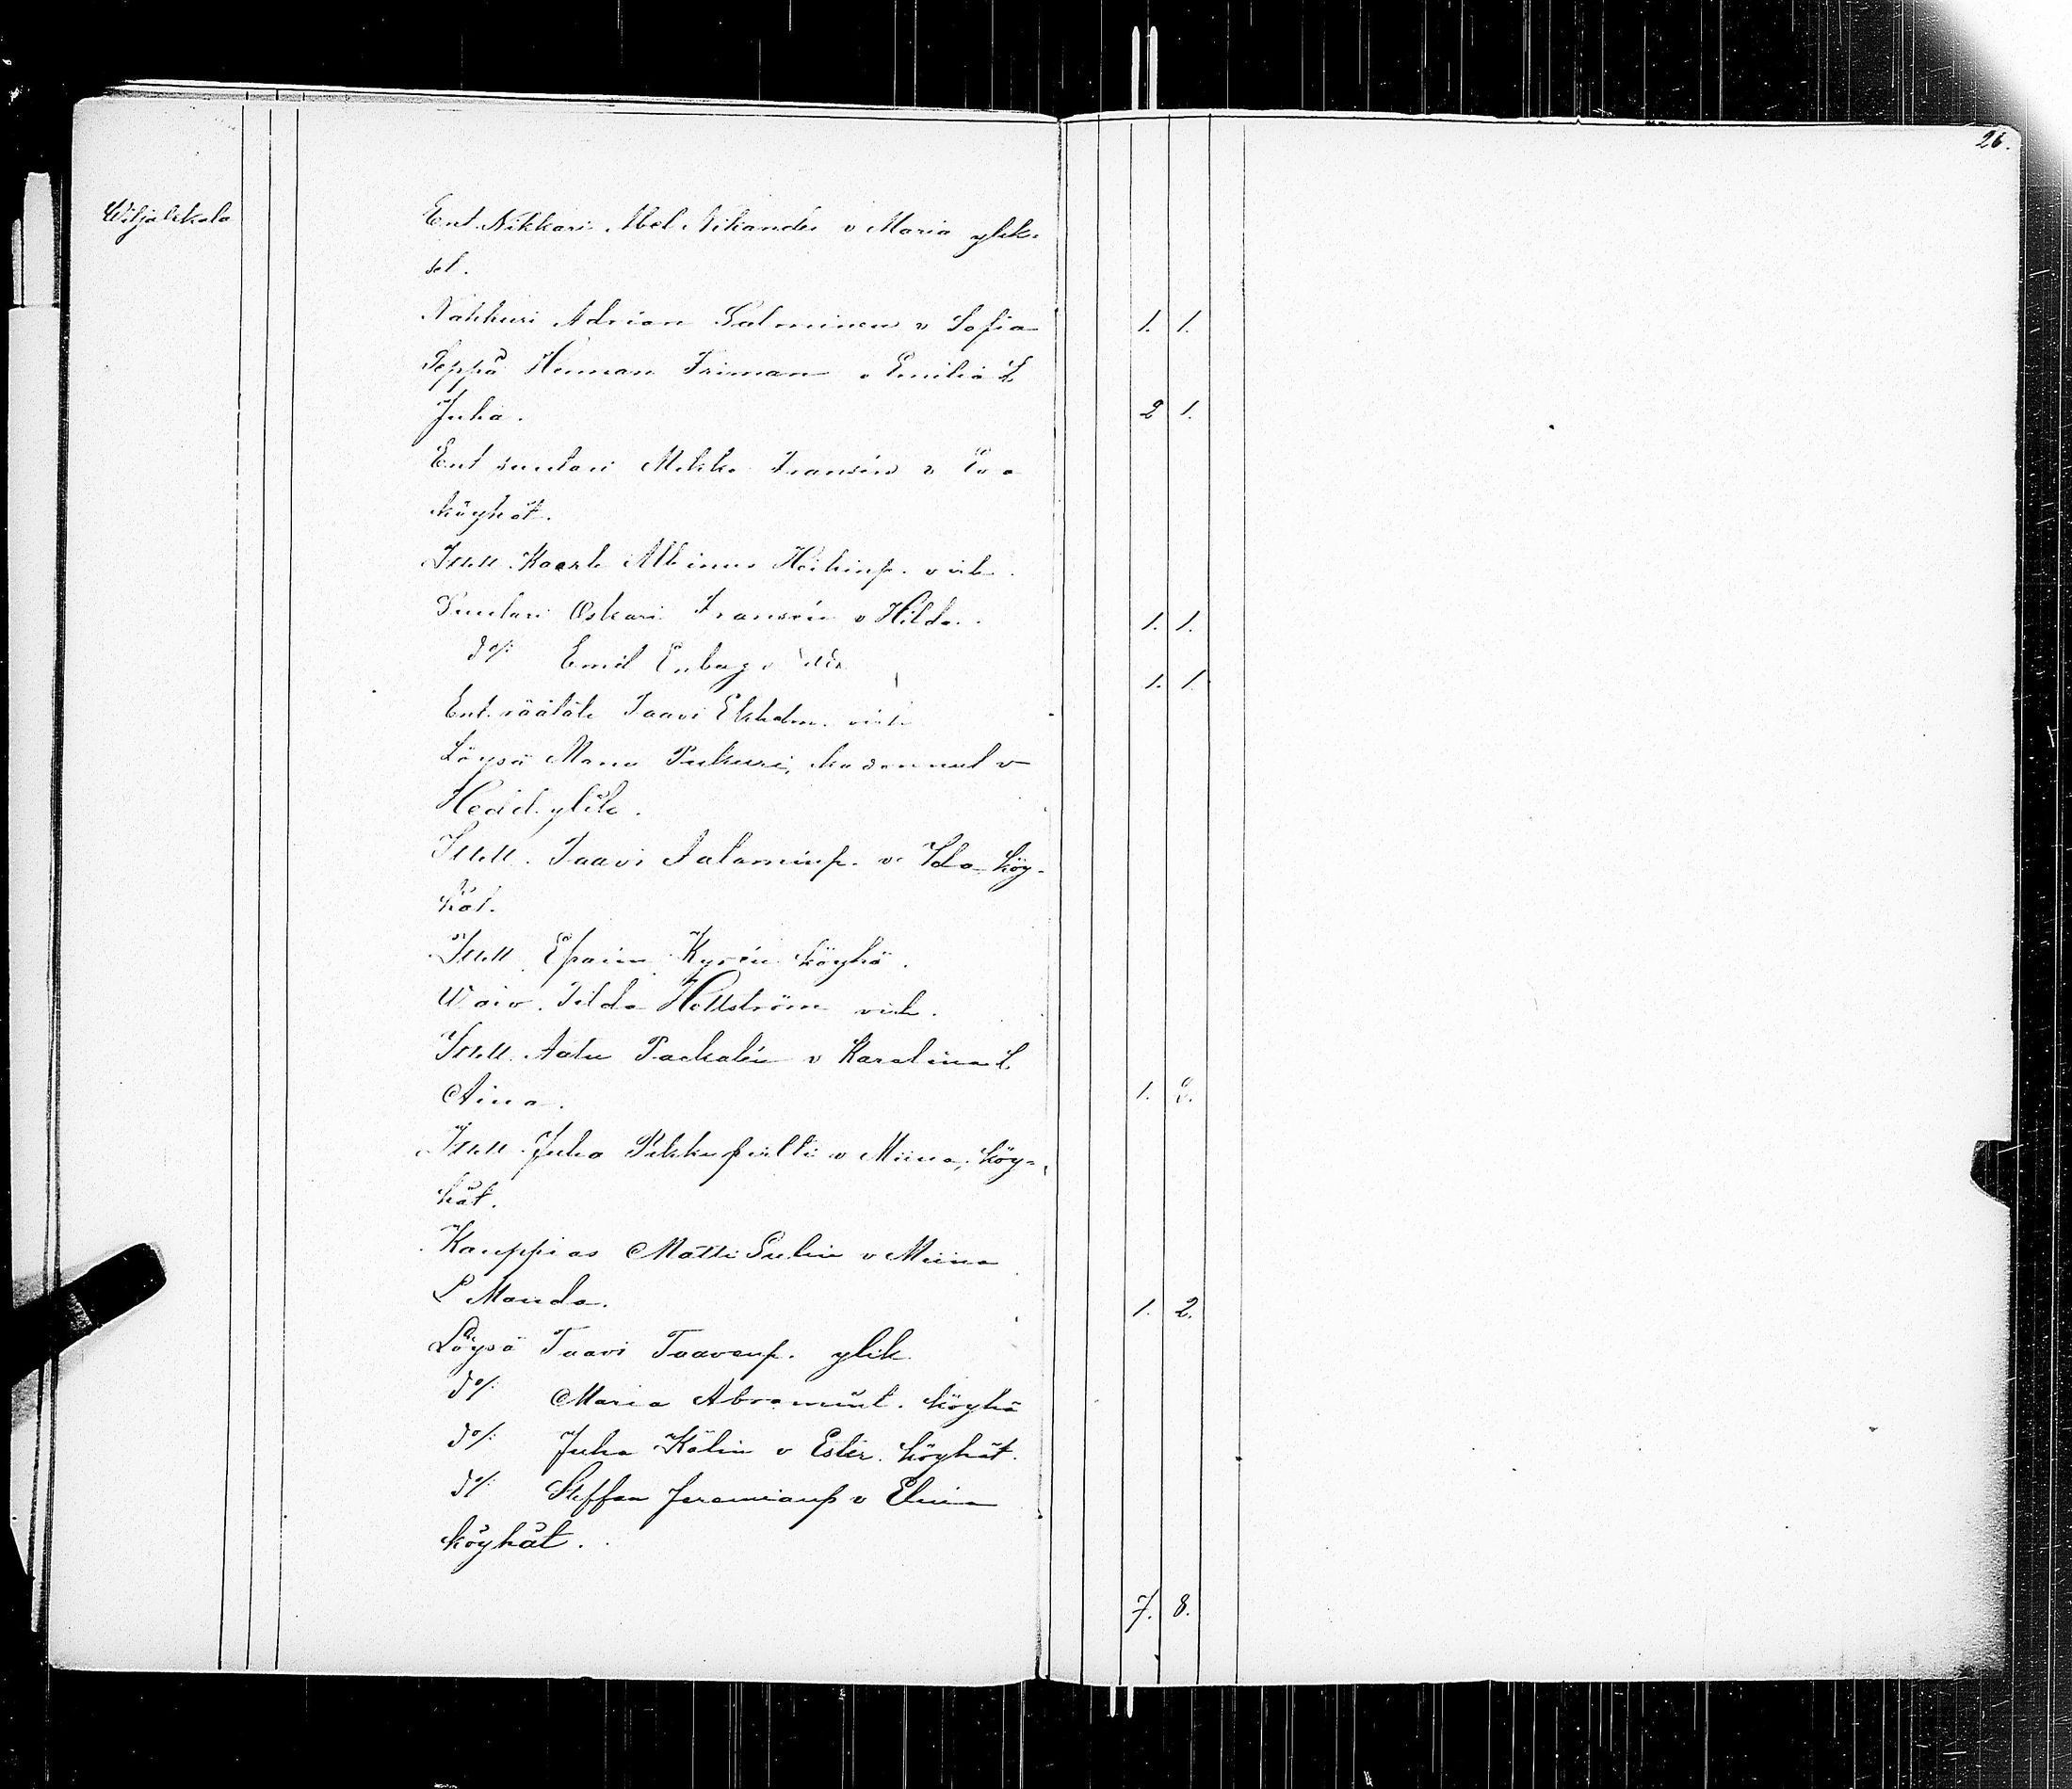 26.
Wiljakkala
Ent. Nikkari Abel Nikander v Maria ylik.
set.
Nahkuri Adrian Salminen v Sofia 1. 1.
Seppä Herman Friman v Emilia L
Juha. 2 1.
Ent suutari Mikko Fransén v Eva
köyhät.
Itsell. Kaarle Albinus Heikinp. v vik.
Suutari Oskari Fransén v Hilda. 1. 1.
do/: Emil Enberg v 1. 1.
Ent. räätäli Taavi Ekholm. vik
Löysä Manu Pukuri, kadonnut v
Hedd. ylik.
Itsell. Taavi Salominp. v Ida köy-
hät.
Itsell. Efraim Kyrén köyhä.
Waiv. Tilda Hellström vik.
Itsell. Aatu Packalén v Karolina L
Aina. 1. 2.
Itsell. Juha Pikkupirtti v Miina, köy-
hät.
Kauppias Matti Sulin v Miina
L Manda. 1. 2.
Löysä Taavi Taavenp. ylik.
do/: Maria Abramint. köyhä
do/: Juha Kälin v Ester. köyhät.
do/: Steffan Jeremianp v Elviina
köyhät.
7. 8.